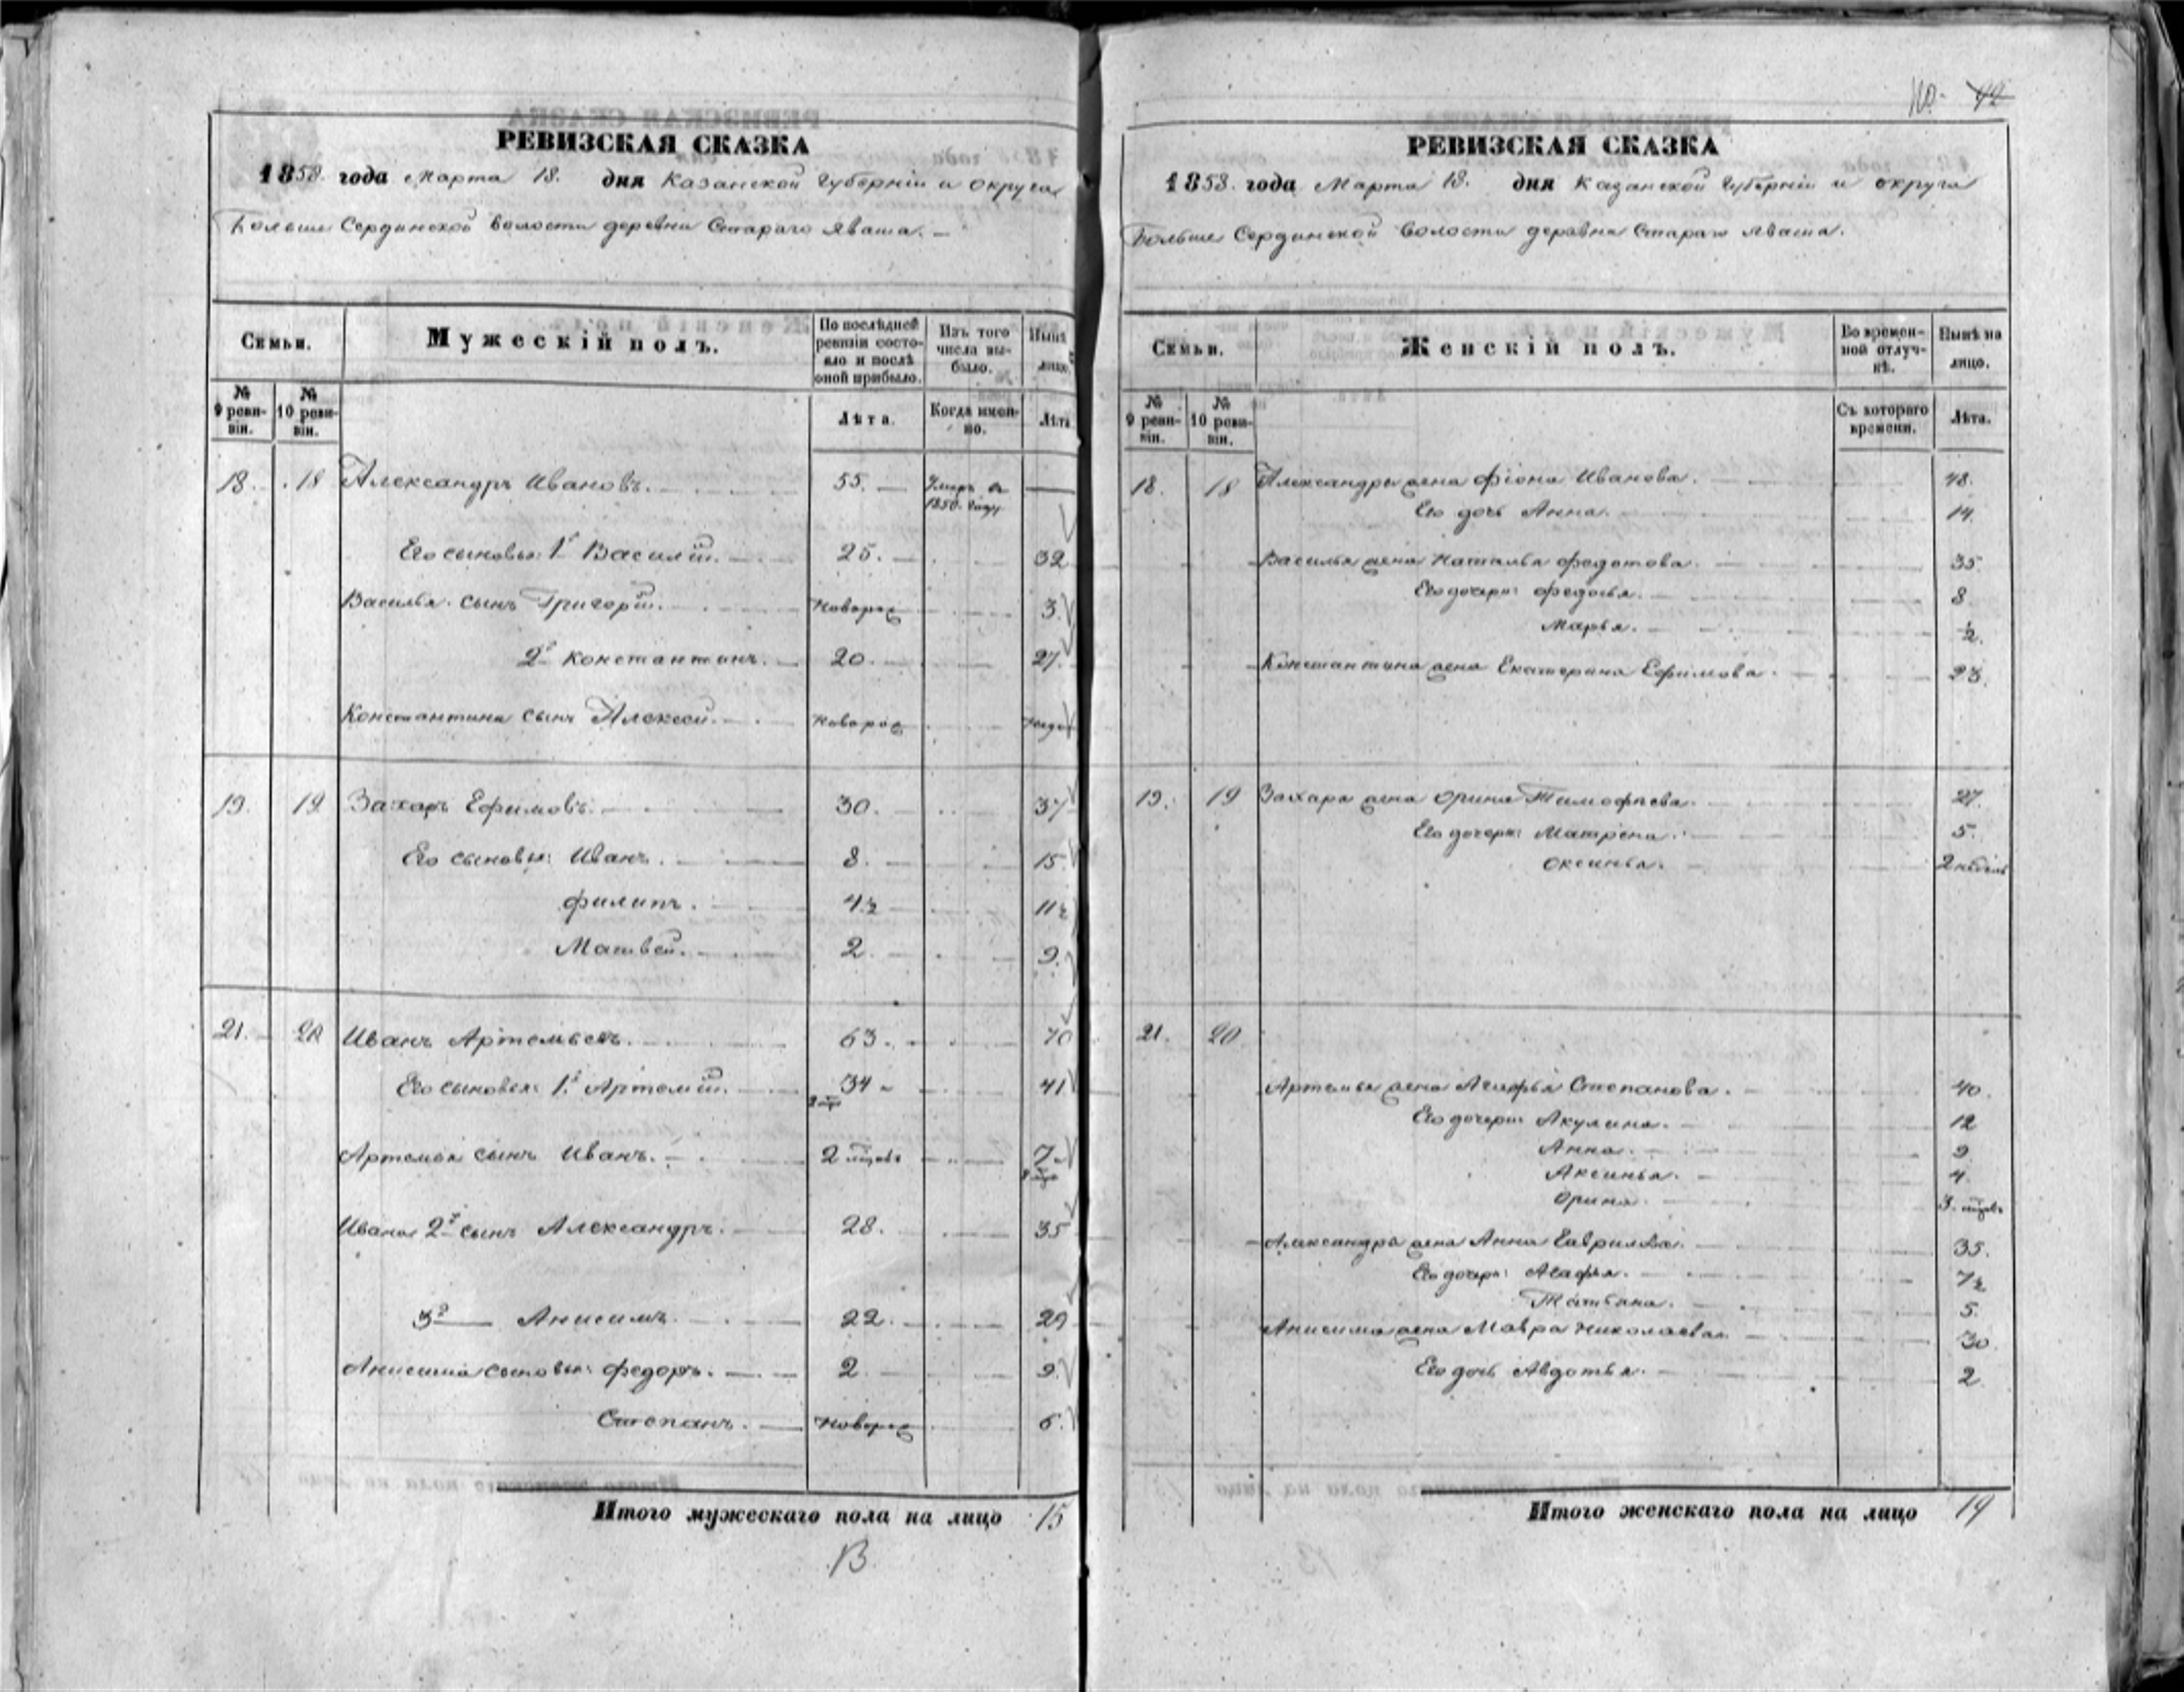 РЕВИЗСКАЯ СКАЗКА
1858. года Марта 18. дня Казанской Губернiи и округа
Больше Сердинской волости деревни Стараго Аваша. –
Семьи.
Мужескiй полъ.
По последней ревизiи состояло и послѣ оной прибыло.
Изъ того числа выбыло.
Нынѣ лицо.
№ 9 ревизiи.
№ 10 ревизiи.
Лѣта.
Когда именно.
Лѣта
18. 18 Александръ Ивановъ. 55. Умеръ въ 1850. году —
Его сыновья: 1й Василiй. 25. 32
Василья сынъ Григорiй. Новорож 3.
2й Константинъ. 20. 27.
Константина сынъ Алексей. Новорож
19. 19 Захаръ Ефимовъ. 30. 37
Его сыновья: Иванъ. 8. 15
Филипъ. 4½ 11½
Матвей. 2. 9.
21. 20 Иванъ Артемьевъ. 63. 70
Его сыновья: 1й Артемiй. 34 41
Артемья сынъ Иванъ. 2 7
Ивана 2й сынъ Александръ. 28. 35
3й — Анисимъ. 22. 29
Анисима сыновья: Федоръ. 2. 9.
Степанъ. Новорож 6.
Итого мужескаго пола на лицо 15
РЕВИЗСКАЯ СКАЗКА
1858. года Марта 18. дня Казанской Губернiи и округа
Больше Сердинской волости деревни Стараго Аваша.
Семьи.
Женскiй полъ.
Во временной отлучкѣ.
Нынѣ на лицо.
№ 9 ревизiи.
№ 10 ревизiи.
Съ котораго времени.
Лѣта.
18. 18 Александры жена Фiона Иванова. 48.
Его дочь Анна. 14.
Василья жена Наталья Федотова. 35
Его дочери: Федосья. 8.
Марья. ½.
Константина жена Екатерина Ефимова. 23.
19. 19 Захара жена Орина Тимофѣева. 27.
Его дочери: Матрена. 5.
Оксинья. 2 недели
21. 20
Артемья жена Агафья Степанова. 40.
Его дочери: Акулина. 12
Анна. 9
Аксинья. 4.
Орина. 3.
Александра жена Анна Гаврилова. 35.
Его дочери: Агафья. 7½
Татьяна. 5.
Анисима жена Мавра Николаева. 30.
Его дочь Авдотья. 2
Итого женскаго пола на лицо 19